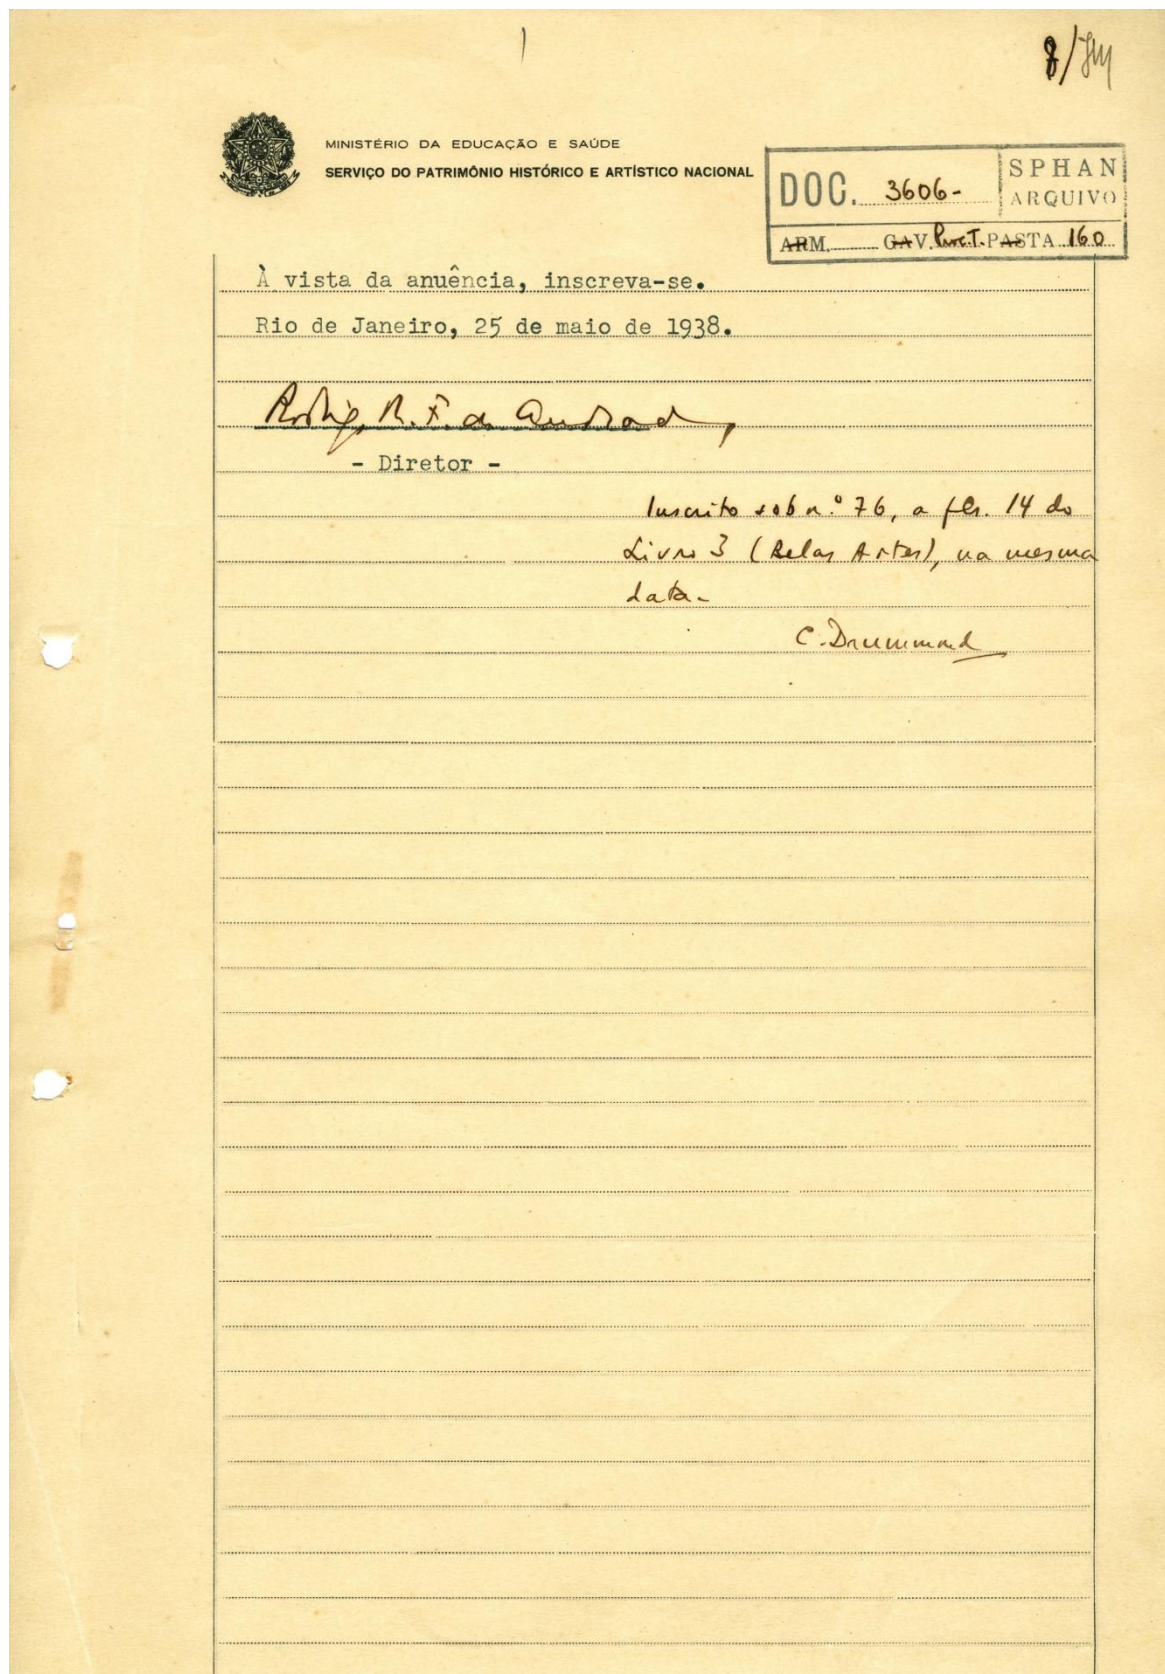 8/
MINISTÉRIO DA EDUCAÇÃO E SAÚDE
SERVIÇO DO PATRIMÔNIO HISTÓRICO E ARTÍSTICO NACIONAL
DOC. 3606-
SPHAN
ARQUIVO
ARM. GAV. Proc.T. PASTA 160
À vista da anuência, inscreva-se.
Rio de Janeiro, 25 de maio de 1938.
Rodrigo M. F. de Andrade,
- Diretor -
Inscrito sob n.º 76, a fls. 14 do
Livro 3 (Belas Artes), na mesma
data-
C. Drummond